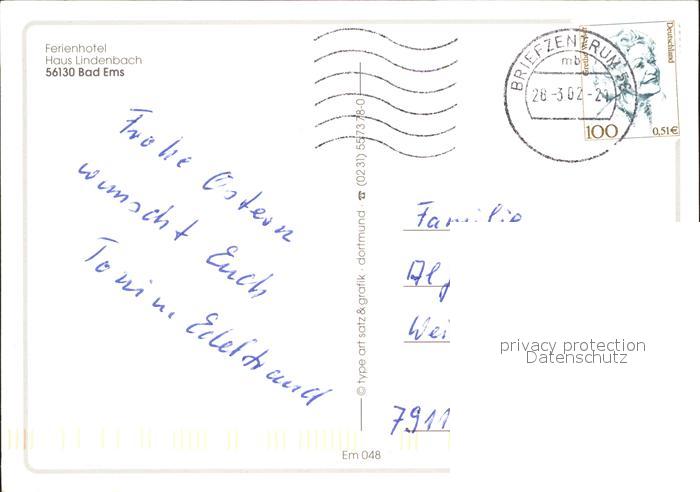 Ferienhotel
Haus Lindenbach
56130 Bad Ems
Frohe Ostern
wünscht Euch
BRIEFZENTRUM 56
mb
28-3.02-21
Deutschland
100
0,51€
© type art satz & grafik · dortmund · ☎ (0231) 557378-0
Familie
Wei
7911
privacy protection
Datenschutz
Em 048